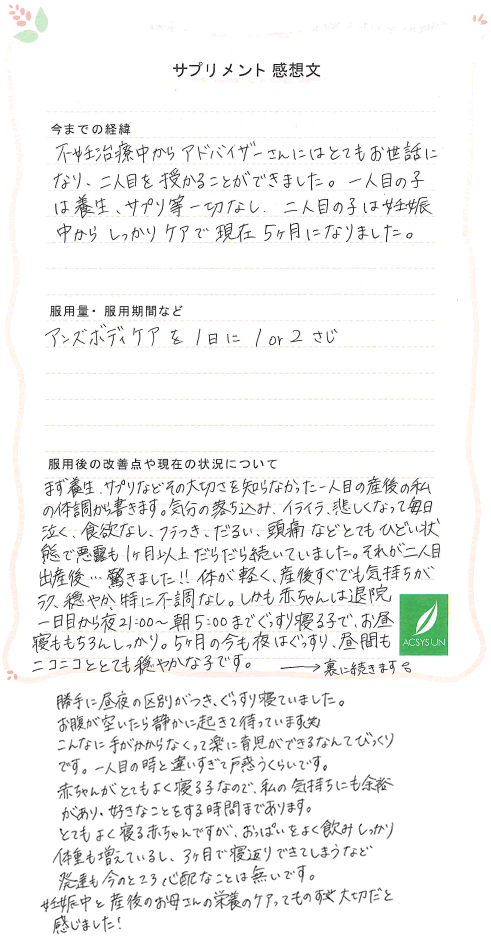 サプリメント 感想文
今までの経緯
不妊治療中から アドバイザーさんにはとてもお世話に
なり、二人目を授かることができました。一人目の子
は養生、サプリ等一切なし. 二人目の子は妊娠
中から しっかりケアで 現在 5ヶ月になりました。
服用量・服用期間など
アンズボディケア を 1日に 1 or 2 さじ
服用後の改善点や現在の状況について
まず養生、サプリなどその大切さを知らなかった一人目の産後の私
の体調から書きます。気分の落ち込み、イライラ、悲しくなって毎日
泣く、食欲なし、フラつき、だるい、頭痛などとてもひどい状
態で悪露も1ヶ月以上だらだら続いていました。それが二人目
出産後…驚きました!! 体が軽く、産後すぐでも気持ちが
ラク、穏やか、特に不調なし。しかも赤ちゃんは退院
一日目から夜21:00〜朝5:00までぐっすり寝る子で、お昼
寝ももちろんしっかり。5ヶ月の今も夜はぐっすり、昼間も
ニコニコととても穏やかな子です。 →裏に続きます
ACSYS UN
勝手に昼夜の区別がつき、ぐっすり寝ていました。
お腹が空いたら静かに起きて待っています
こんなに手がかからなくって楽に育児ができるなんてびっくり
です。一人目の時と違いすぎて戸惑うくらいです。
赤ちゃんがとてもよく寝る子なので、私の気持ちにも余裕
があり、好きなことをする時間まであります。
とてもよく寝る赤ちゃんですが、おっぱいをよく飲みしっかり
体重も増えているし、3ヶ月で寝返りできてしまうなど
発達も今のところ心配なことは無いです。
妊娠中と産後のお母さんの栄養のケアってものすごく大切だと
感じました!